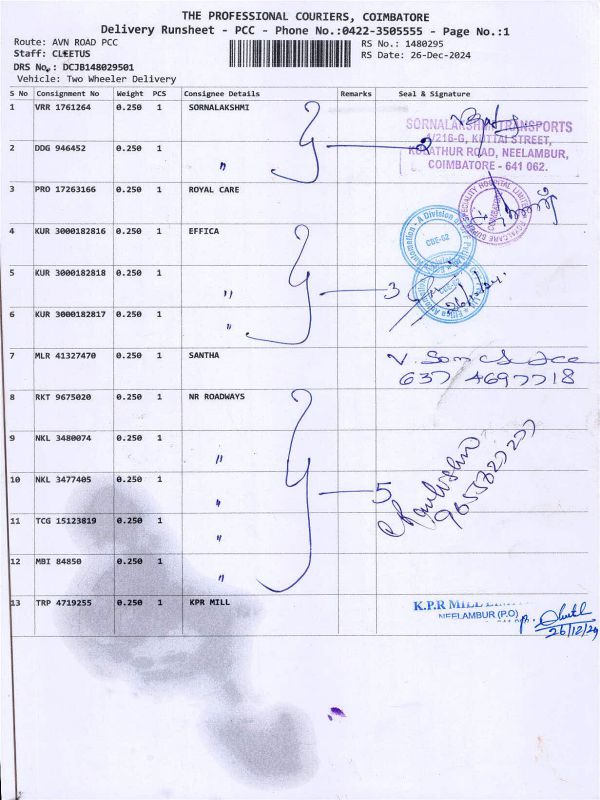 THE PROFESSIONAL COURIERS, COIMBATORE
Delivery Runsheet - PCC - Phone No.:0422-3505555 - Page No.:1
Route: AVN ROAD PCC
RS No.: 1480295
Staff: CLEETUS
RS Date: 26-Dec-2024
DRS No.: DCJB148029501
Vehicle: Two Wheeler Delivery
S No Consignment No Weight PCS Consignee Details Remarks Seal & Signature
1 VRR 1761264 0.250 1 SORNALAKSHMI
2 DDG 946452 0.250 1 "
2
SORNALAKSHMI TRANSPORTS
4/216-G, KUTTAI STREET,
KURATHUR ROAD, NEELAMBUR,
COIMBATORE - 641 062.
3 PRO 17263166 0.250 1 ROYAL CARE
4 KUR 3000182816 0.250 1 EFFICA
CBE-62
5 KUR 3000182818 0.250 1 "
3
26/12/24
6 KUR 3000182817 0.250 1 "
7 MLR 41327470 0.250 1 SANTHA
637 4697718
8 RKT 9675020 0.250 1 NR ROADWAYS
9 NKL 3480074 0.250 1 "
10 NKL 3477405 0.250 1 "
5
11 TCG 15123819 0.250 1 "
12 MBI 84850 0.250 1 "
13 TRP 4719255 0.250 1 KPR MILL
K.P.R MILL
NEELAMBUR (P.O)
26/12/24